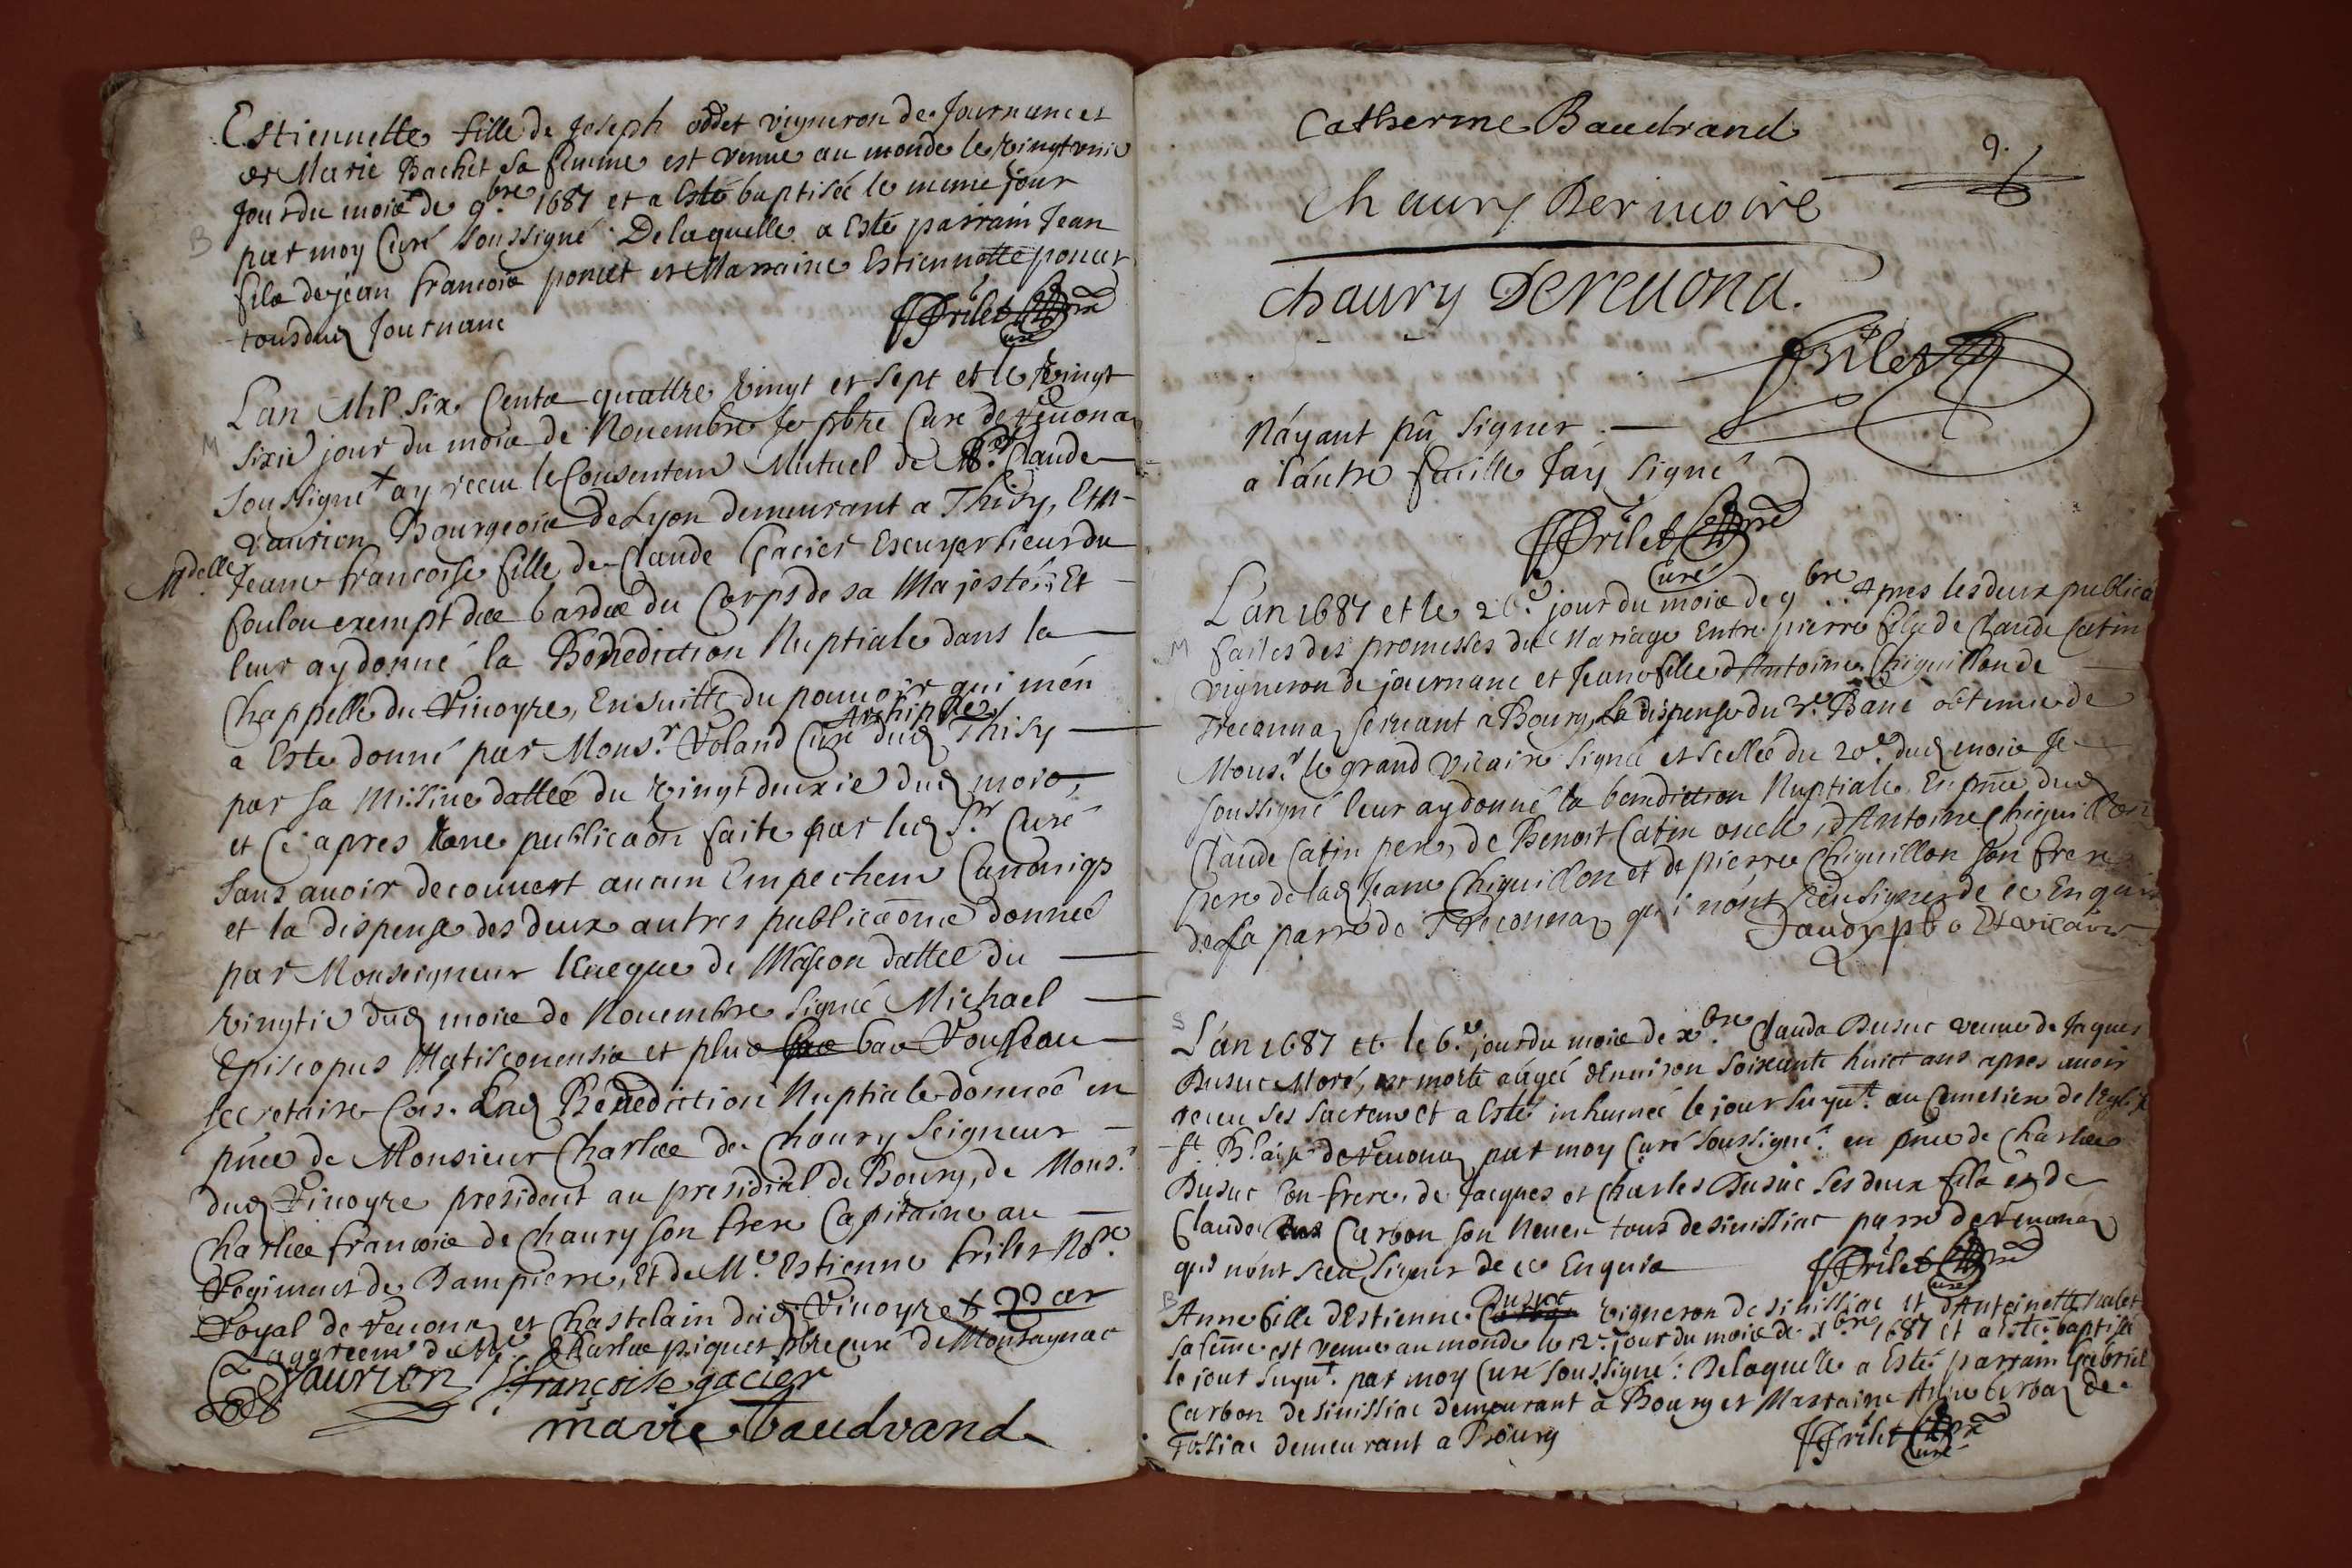 Estiennette fille de Joseph oddet vigneron de Journanc et
et Marie Bachet sa femme est venue au monde le vingtunie
Jour du mois de 9bre 1687 et a Esté baptisée le meme jour
B
par moy Curé soussigné. Delaquelle a Esté parrain Jean
fils de jean francois poncet et Marraine Estiennette poncet
tous dud Journanc
JFrilet Curé
Lan Mil six Cents quattre vingt et sept et le vingt
M
sixie jour du mois de Novembre Je pbre Curé de Revona
soussigné ay receu le Consentem Mutuel de Sr Claude
vaurion Bourgeois de Lyon demeurant a Thisy, Et
Mdelle
Jeanne francoise fille de Claude Gacier Escuyer sieur du
foulou exempt des Gardes du Corps de sa Majesté; Et
leur ay donné la Benediction Nuptiale dans la
Chappelle du Vinoyre, En suitte du pouvoir qui m'en
a Esté donné par Monsr Voland Curé Archiptre dud Thisy
par sa Missive dattée du vingt deuxie dud mois,
et Ce apres Une publicaon faite par led Sr Curé
sans avoir decouvert aucun Empechem Canoniqs
et la dispense des deux autres publicaons donneé
par Monseigneur leveque de Mascon dattée du
vingtie dud mois de Novembre signée Michael
Episcopus Matisconensis et plus bas Rousseau
secretaire Lad Benediction Nuptiale donneé en
pnce de Monsieur Charles de Chaury Seigneur
dud Vinoyre president au presidial de Bourg, de Monsr
Charles francois de Chaury son frere Capitaine au
Regiment de Dampierre, Et de Me Estienne frilet No.re
Royal de Revona et Chastelain dud Vinoyre
Lagreem de Me Charles piquet pbre curé de Montagnac
Vaurion françoise gacier
marie Baudrand
Catherine Baudrand
9.
Chaury Dervinoire
Chaury Derevona.
frilet
N'ayant pû signer
a l'autre faeille Jay signé
JFrilet Curé
L'an 1687 et le 26e jour du mois de 9bre. Apres les deux publica
M
faites des promesses de Mariage Entre pierre fils de Claude Catin
vigneron de journanc et Jeane fille d'Antoine Chiguillon de
Treconna servant a Bourg, La dispense du 3e Banc obtenue de
Monsr le grand vicaire signée et scellée du 20e dud mois Je
soussigné leur ay donné la benediction Nuptiale En pnce dud
Claude Catin pere, de Benoit Catin oncle, d'Antoine Chiguillon
pere de lad Jeane Chiguillon et de pierre Chiguillon son frere
de la parre de Treconna qui n'ont sceu signer de ce Enquis
pbre Et vicaire
S
L'an 1687 et le 6e jour du mois de xbre. Clauda Dusuc veuve de Jaques
Dusuc Moré, est morte aágeé denviron soixante huict ans apres avoir
receu ses sacrem et a Esté inhumeé le jour suyut. au Cimetiere de l'Eglise
St. Blaise de Revona par moy Curé soussigné: en pnce de Charles
Dusuc son frere, de Jacques et Charles Dusuc ses deux fils et de
Claude Carbon son Neveu tous de simissiac parre de Revona
qui n'ont sceu signer de ce Enquis
JFrilet Curé
B
Anne fille d'Estienne Dusuc vigneron de simissiac et d'Antoinette
sa feme est venue au monde le 12e. jour du mois de xbre 1687 et a Esté baptisé
le jour suyut. par moy Curé soussigné: Delaquelle a Esté parrain Gabriel
Carbon de simissiac demeurant a Bourg et Marraine Anne de
Tossiac demeurant a Bourg
JFrilet Curé